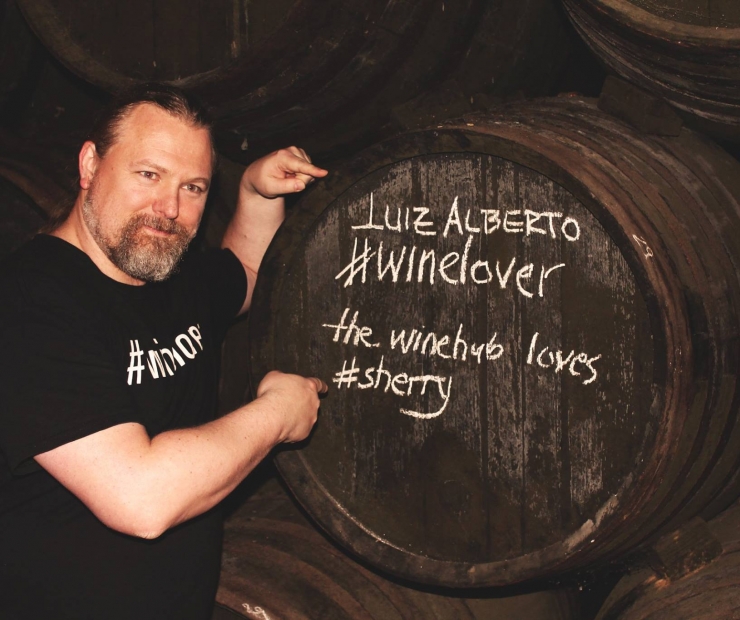 LUIZ ALBERTO
#winelover
the winehub loves
#sherry